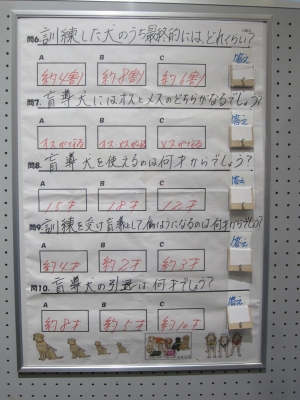 問6. 訓練した犬のうち最終的には、どれくらい?
A B C 答え
約4割 約8割 約6割
問7. 盲導犬にはオスとメスのどちらがなるでしょう?
A B C 答え
オスがなる オス・メスがなる メスがなる
問8. 盲導犬を使えるのは何才からでしょう?
A B C 答え
15才 18才 12才
問9. 訓練を受け盲導犬として働けるようになるのは何才からでしょう?
A B C 答え
約4才 約2才 約3才
問10. 盲導犬の引退は何才でしょう?
A B C 答え
約8才 約5才 約10才